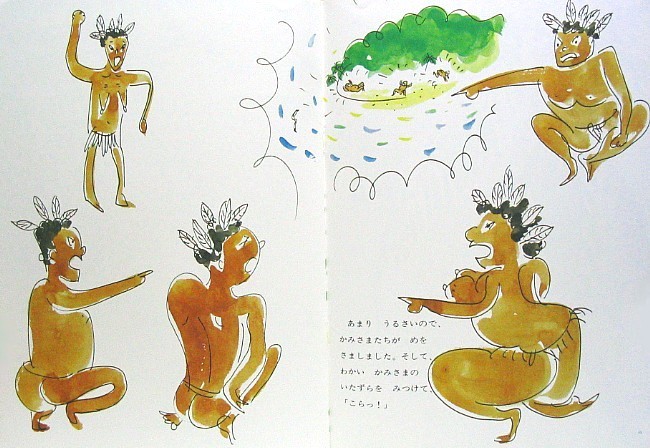 あまり　うるさいので、
かみさまたちが　めを
さましました。そして、
わかい　かみさまの
いたずらを　みつけて、
「こらっ！」